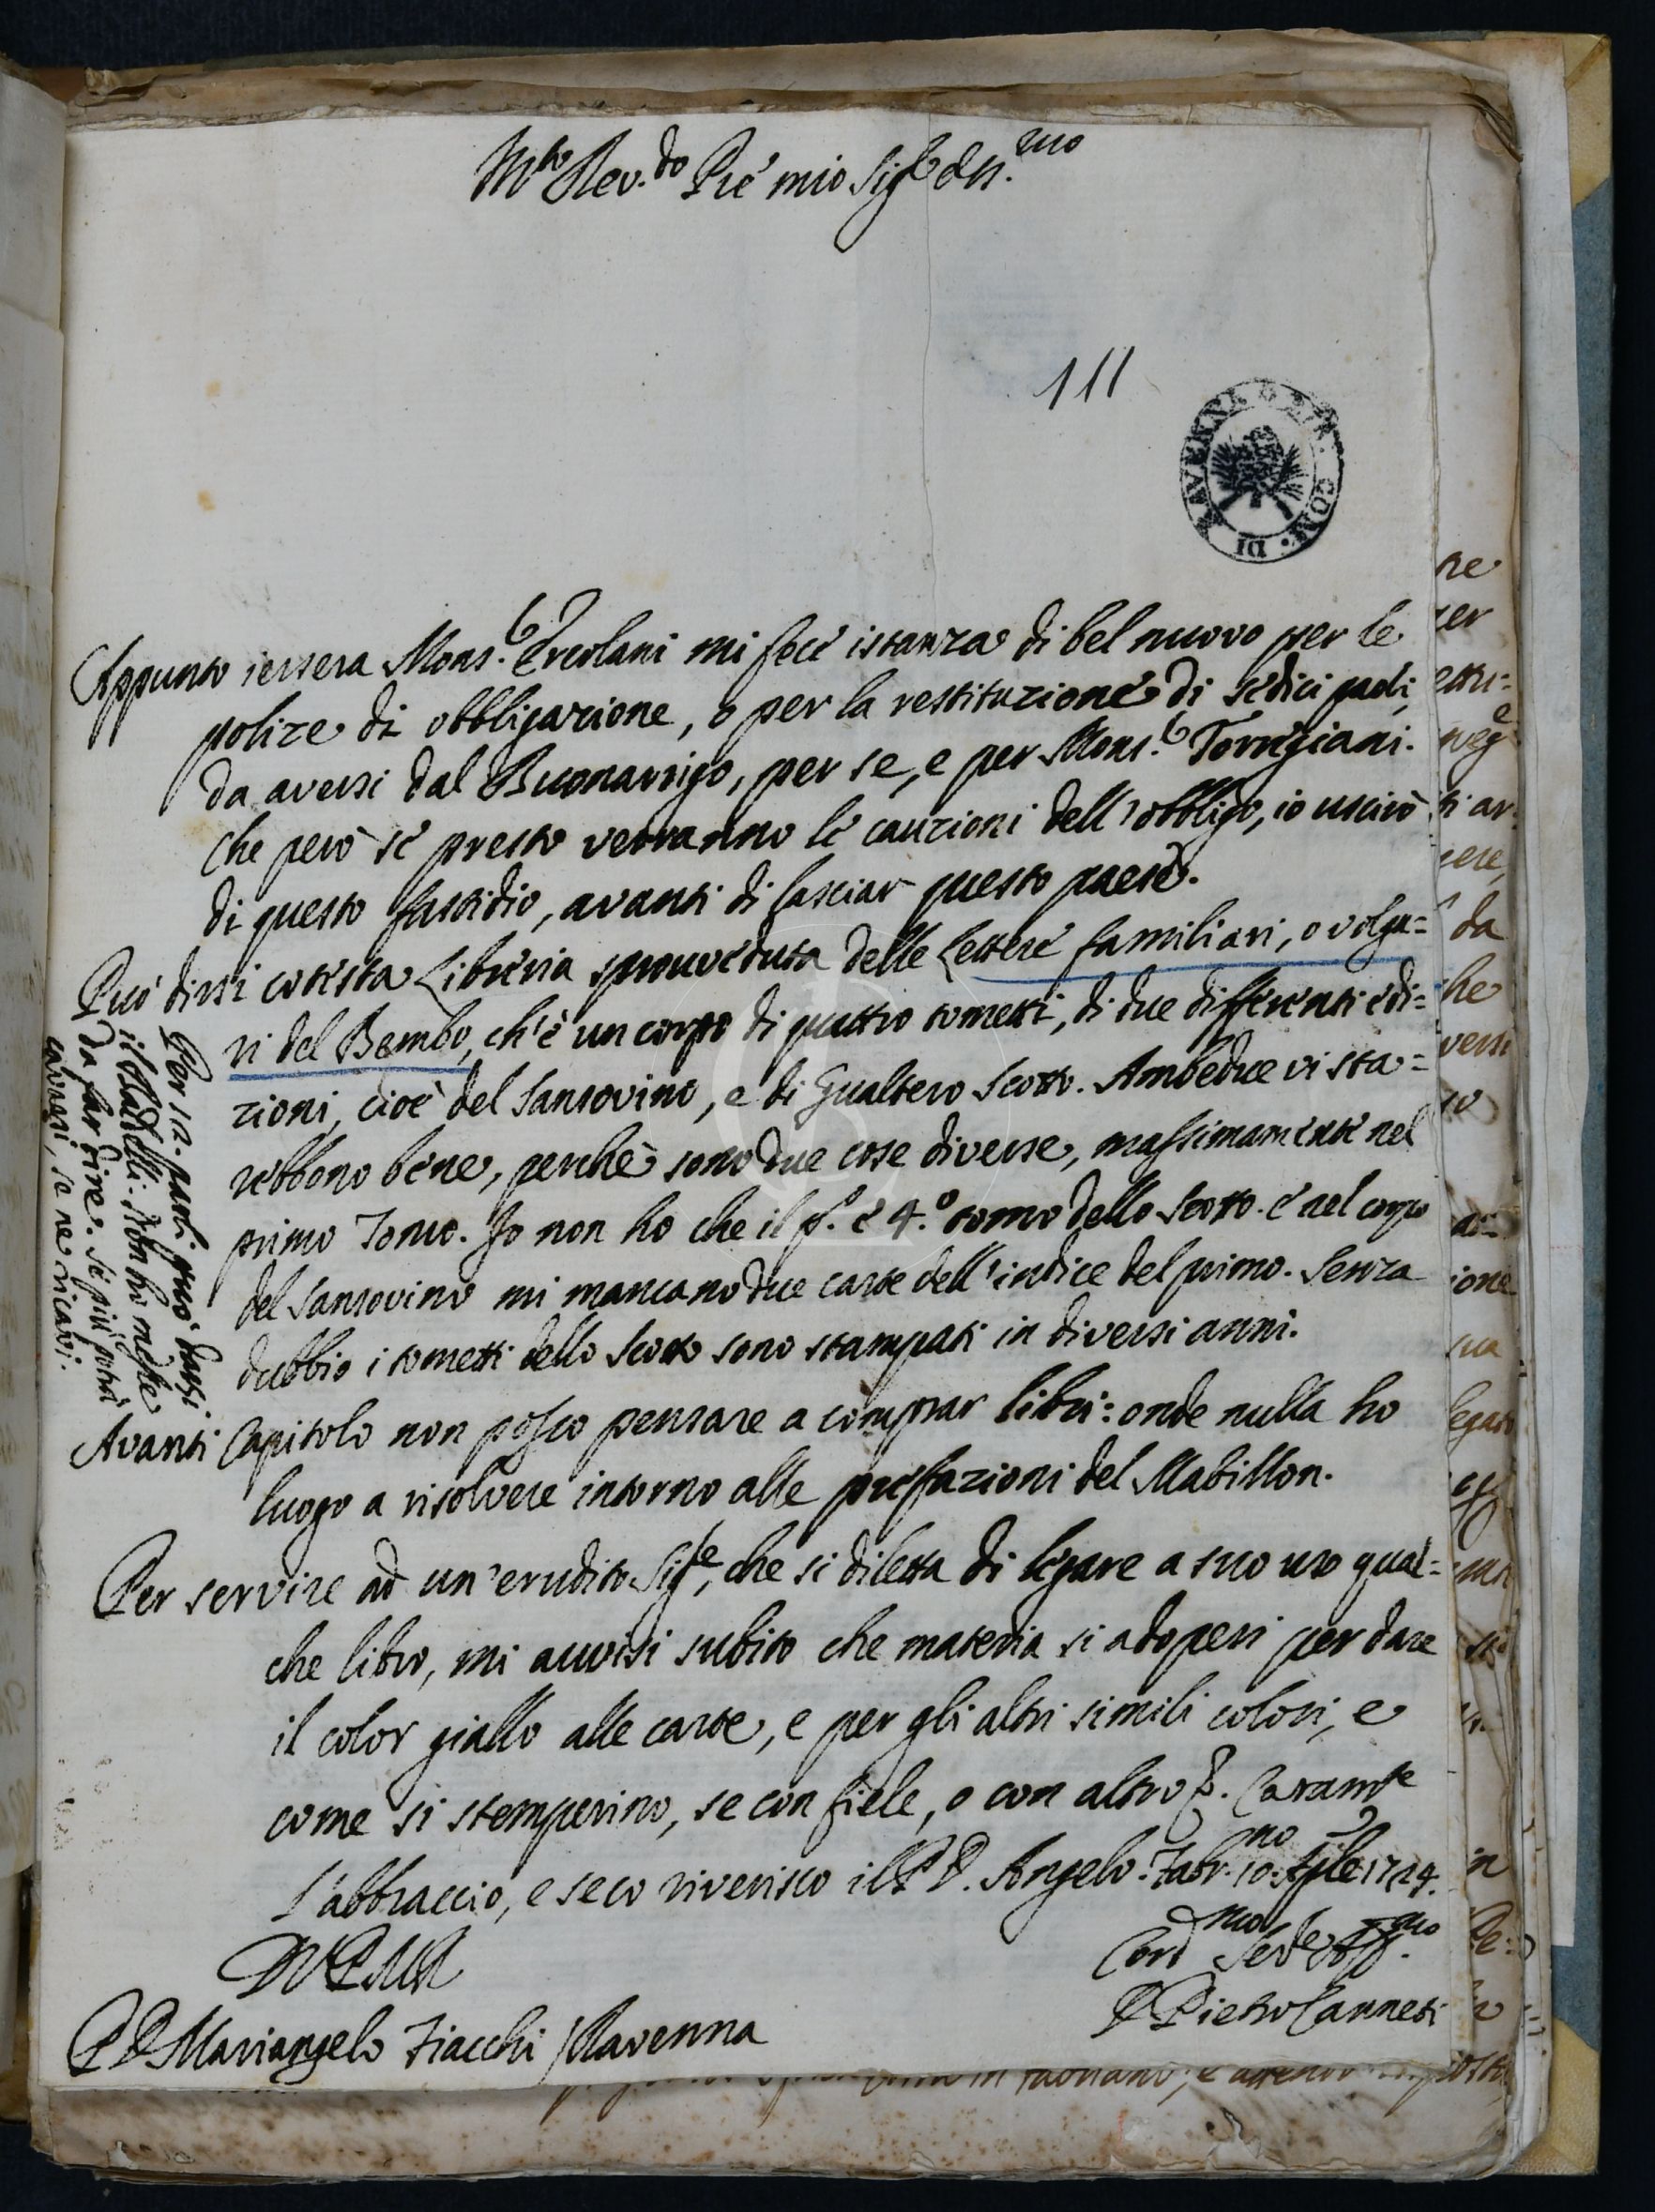 M.to Rev.do Pre mio Sig.re oss.mo
111
BIB. COM. DI RAVENNA
Appunto iersera Mons.r Ercolani mi fece istanza di bel nuovo per le
polize di obbligazione, o per la restituzione di sedici paoli,
da aversi dal Buonarrigo, per se, e per Mons.r Torrigiani.
Che però se presto verranno le cauzioni dell'obbligo, io uscirò
di questo fastidio, avanti di lasciar questo paese.
Può dirsi cotesta Libreria sprouveduta delle Lettere familiari, o volga=
ri del Bembo, ch'è un corpo di quattro tometti, di due differenti edi=
zioni, cioè del Sansovino, e di Gualtero Scotto. Ambedue vi sta=
rebbono bene, perchè sono due cose diverse, massimamente nel
primo Tomo. Io non ho che il p.o e 4.o tomo dello Scotto. e nel corpo
del Sansovino mi mancano due carte dell'indice del primo. Senza
dubbio i tometti dello Scotto sono stampati in diversi anni.
Per 12. paoli può darsi
il Badelli. Non ho meglio
da far dire. Se più potrà
cavarsi, se ne ricavi.
Avanti Capitolo non posso pensare a comprar libri: onde nulla ho
luogo a risolvere intorno alle prefazioni del Mabillon.
Per servire ad un'erudito Sig.re, che si diletta di legare a suo uso qual=
che libro, mi auvisi subito che materia si adoperi per dare
il color giallo alle carte, e per gli altri simili colori, e
come si stemperino, se con fiele, o con altro &. Caram.te
l'abbraccio, e seco riverisco il P. D. Angelo. Fabr.no 10. Aple 1724.
D V P M R
P D Mariangelo Fiacchi / Ravenna
Cord.mo Ser.e obb.mo
D Pietro Canneti